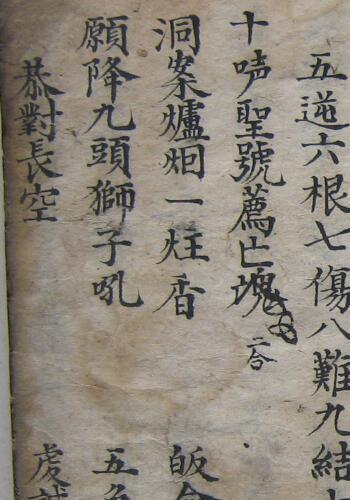 五逆六根七傷八難九結
十声聖號薦亡魂
二合
洞案爐焖一炷香
皈
願降九頭獅子吼
五
恭對長空
虔